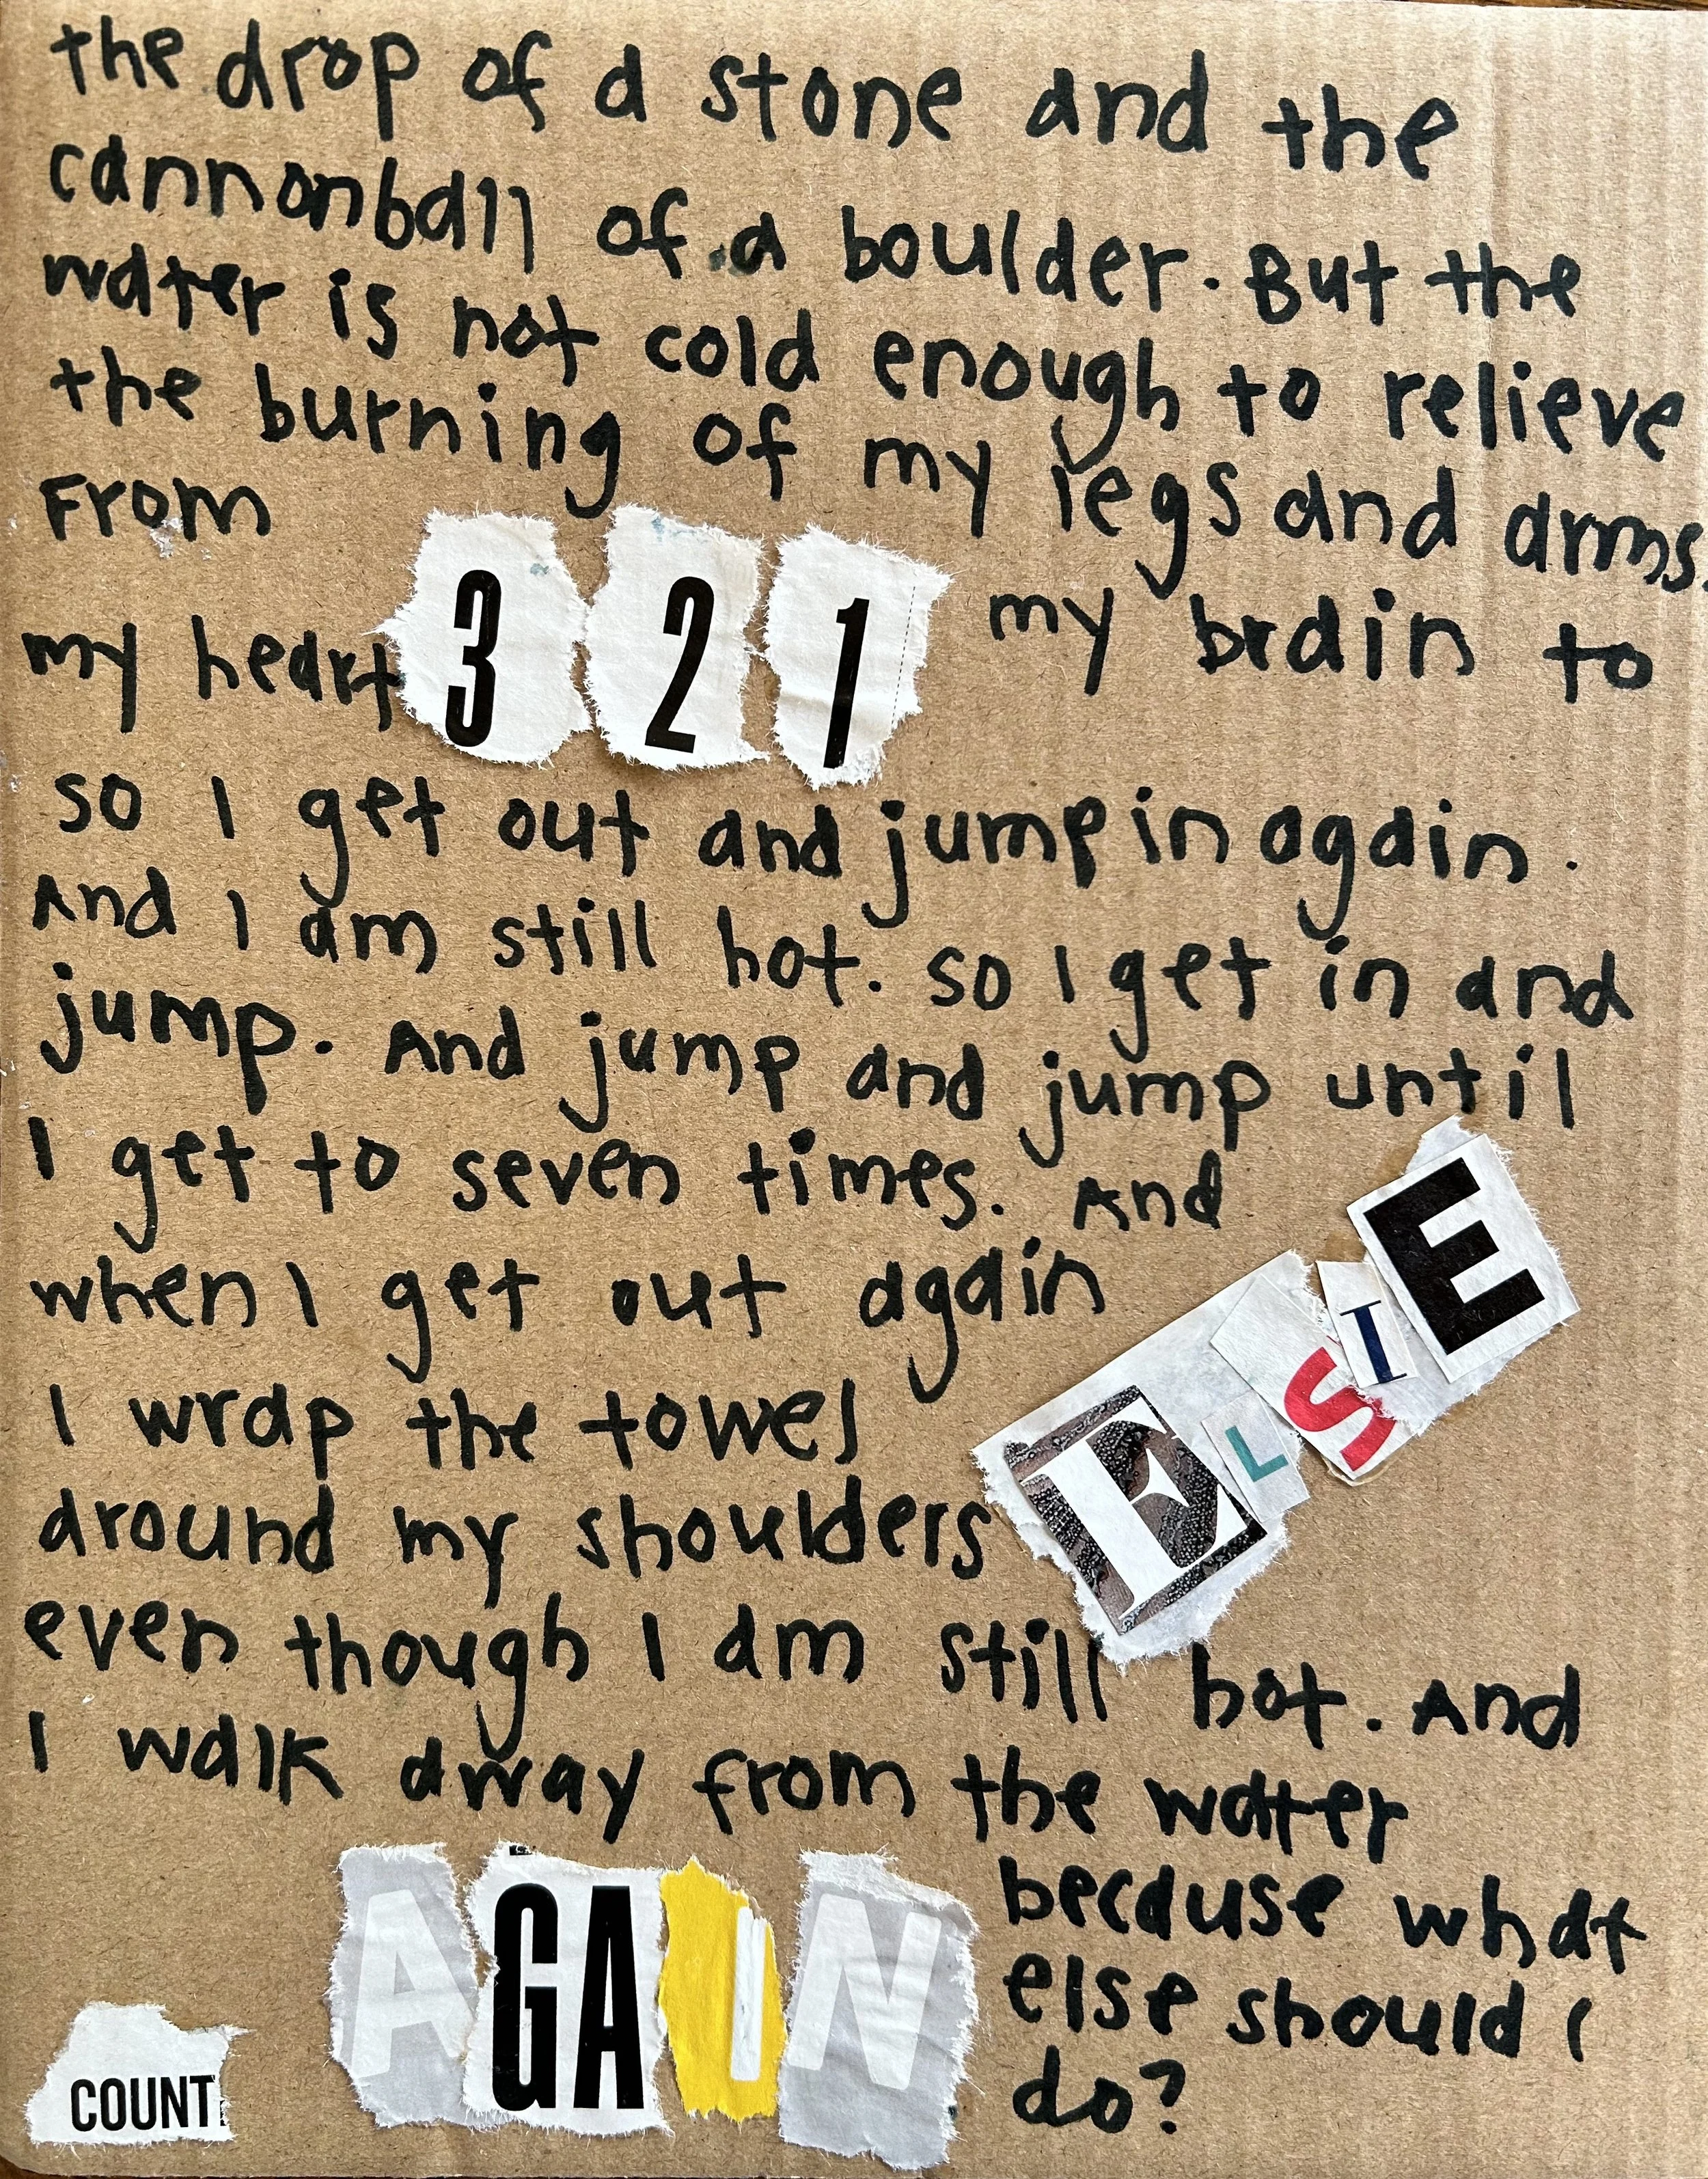 the drop of a stone and the
cannonball of a boulder. But the
water is not cold enough to relieve
the burning of my legs and arms.
From
my heart 3 2 1 my brain to
so I get out and jump in again.
And I am still hot. so I get in and
jump. And jump and jump until
I get to seven times. And
when I get out again
I wrap the towel
around my shoulders
ELSIE
even though I am still hot. And
I walk away from the water
because what
else should I
do?
AGAIN
COUNT